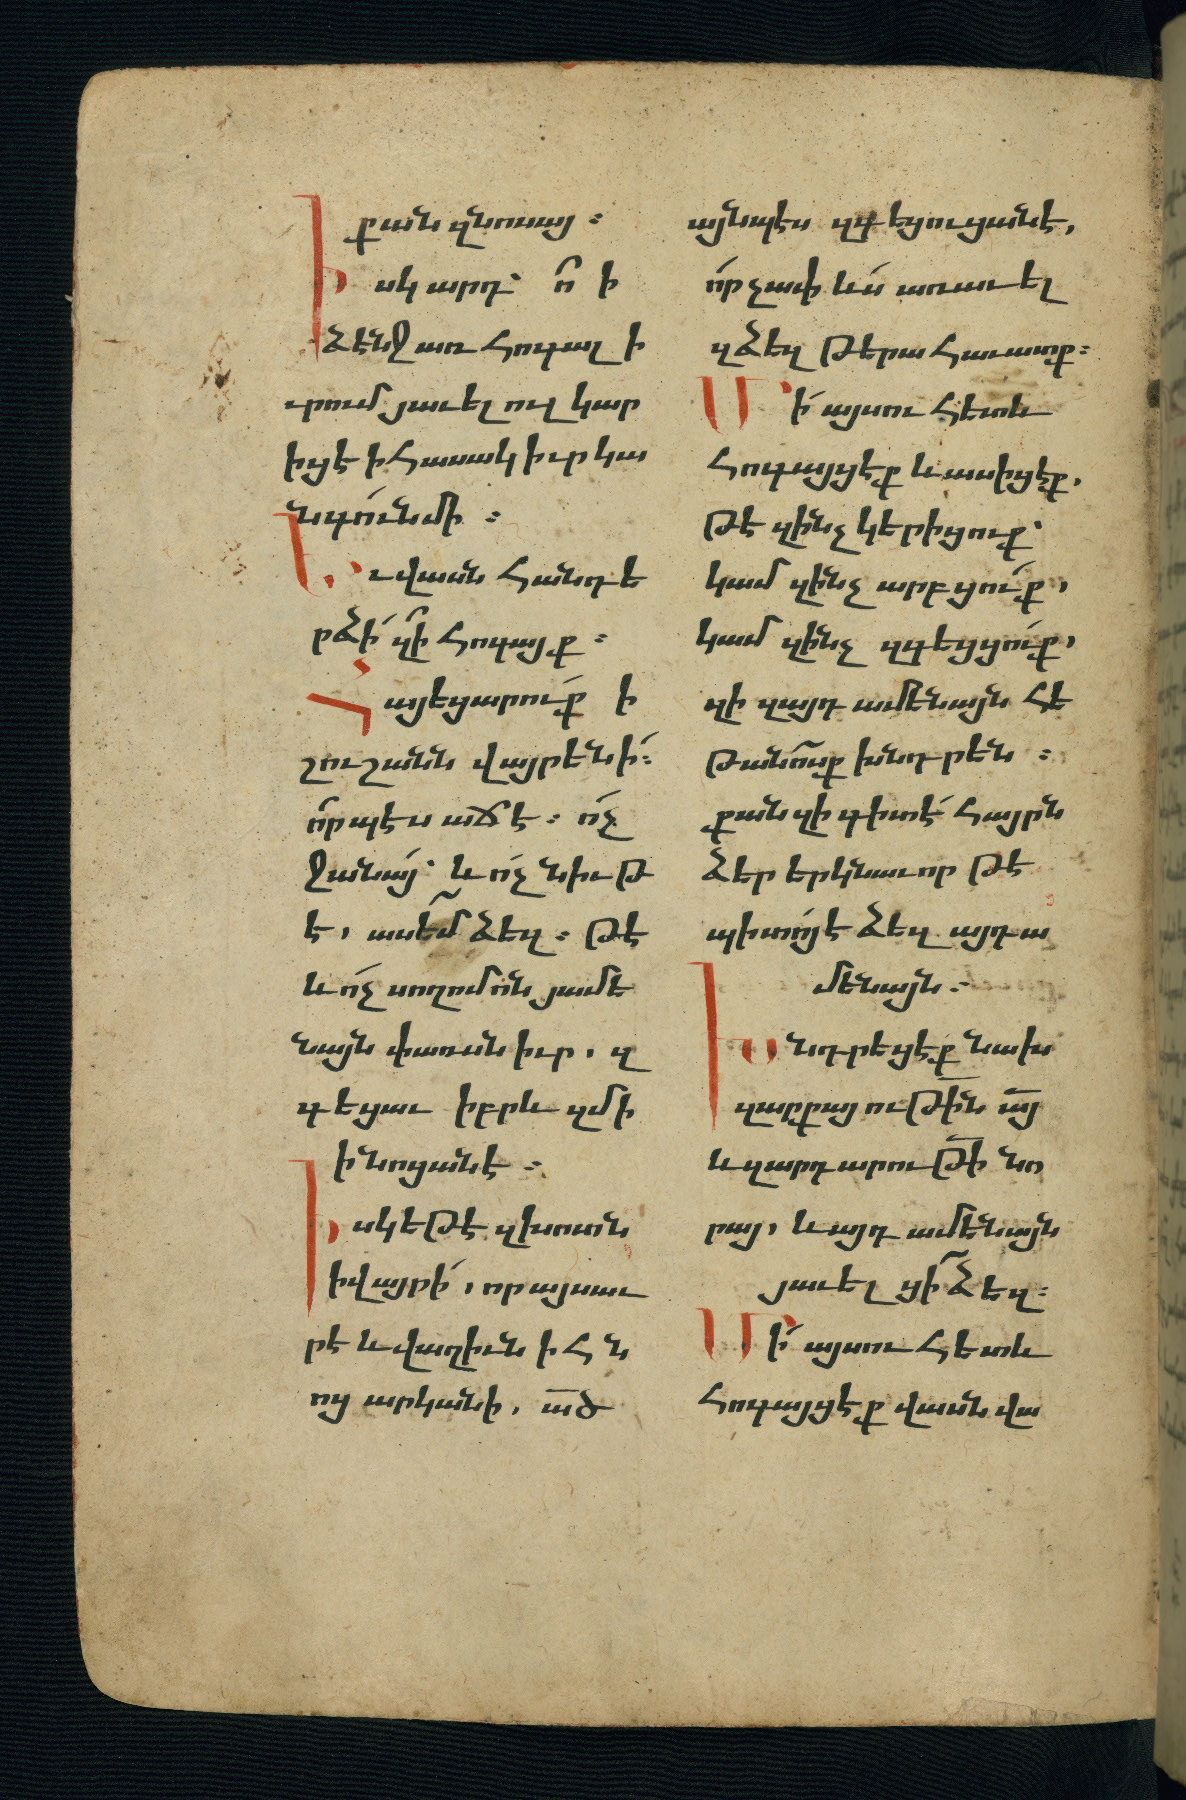 քան զնոսայ :
Իսկ արդ՝ ո՞ ի
ձէնջ առ հոգալ ի
ւրում յաւելուլ կար
իցէ ի հասակ իւր կա
նգո՛ւն մի :
Եւ վասն հանդե
րձի՛ զի՞ հոգայք :
Հայեցարո՛ւք ի
շուշանն վայրենի՛ :
ո՛րպէս աճէ : ո՛չ
ջանա՛յ՝ և ո՛չ նիւթ
է, ասե՜մ ձեզ : թէ
և ո՛չ սողոմոն յամե
նայն փառսն իւր, զ
գեցաւ իբրև զմի
ի նոցանէ :
Իսկ եթէ զխոտն
ի վայրի՛, որ այսաւ
րէ և վաղիւն ի հն
ոց արկանի, ա՟ծ
այնպէս զգեցուցանէ,
ո՛րչափ ևս առաւել
զձեզ թերահաւատք :
Մի՛ այսու հետև
հոգայցէք և ասիցէք,
թէ զինչ կերիցուք՝
կամ զինչ արբցո՛ւք,
կամ զինչ զգեցցո՛ւք,
զի զայդ ամենայն հե
թանոսք խնդրեն :
քանզի գիտէ՛ հայրն
ձեր երկնաւոր թէ
պիտո՛յ է ձեզ այդ ա
մենայն :
Խնդրեցէք նախ
զարքայութի՟ն ա՟յ
և զարդարութի՟ նո
րայ, և այդ ամենայն
յաւելցի՜ ձեզ :
Մի՛ այսու հետև
հոգայցէք վասն վա